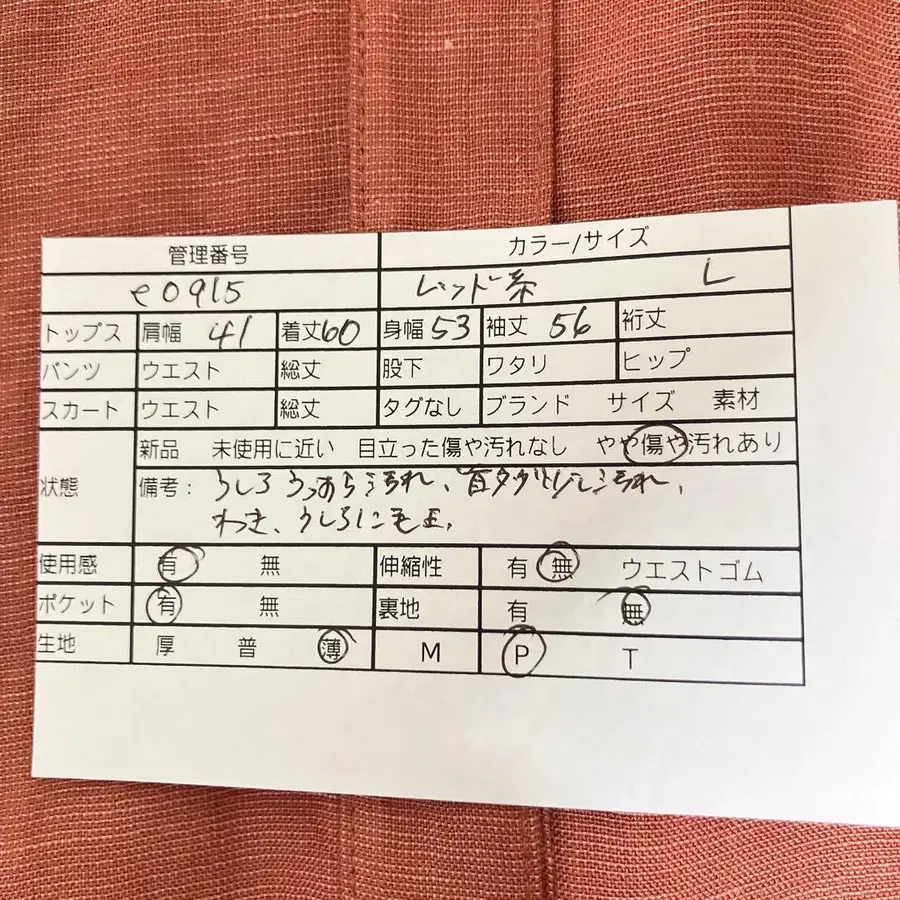 管理番号 カラー/サイズ
e0915 レッド系 L
トップス 肩幅 41 着丈60 身幅53 袖丈 56 裄丈
パンツ ウエスト 総丈 股下 ワタリ ヒップ
スカート ウエスト 総丈 タグなし ブランド サイズ 素材
状態 新品 未使用に近い 目立った傷や汚れなし やや傷や汚れあり
備考: うしろうっすら汚れ、首タグ少し汚れ、
わき、うしろに毛玉、
使用感 有 無 伸縮性 有 無 ウエストゴム
ポケット 有 無 裏地 有 無
生地 厚 普 薄 M P T